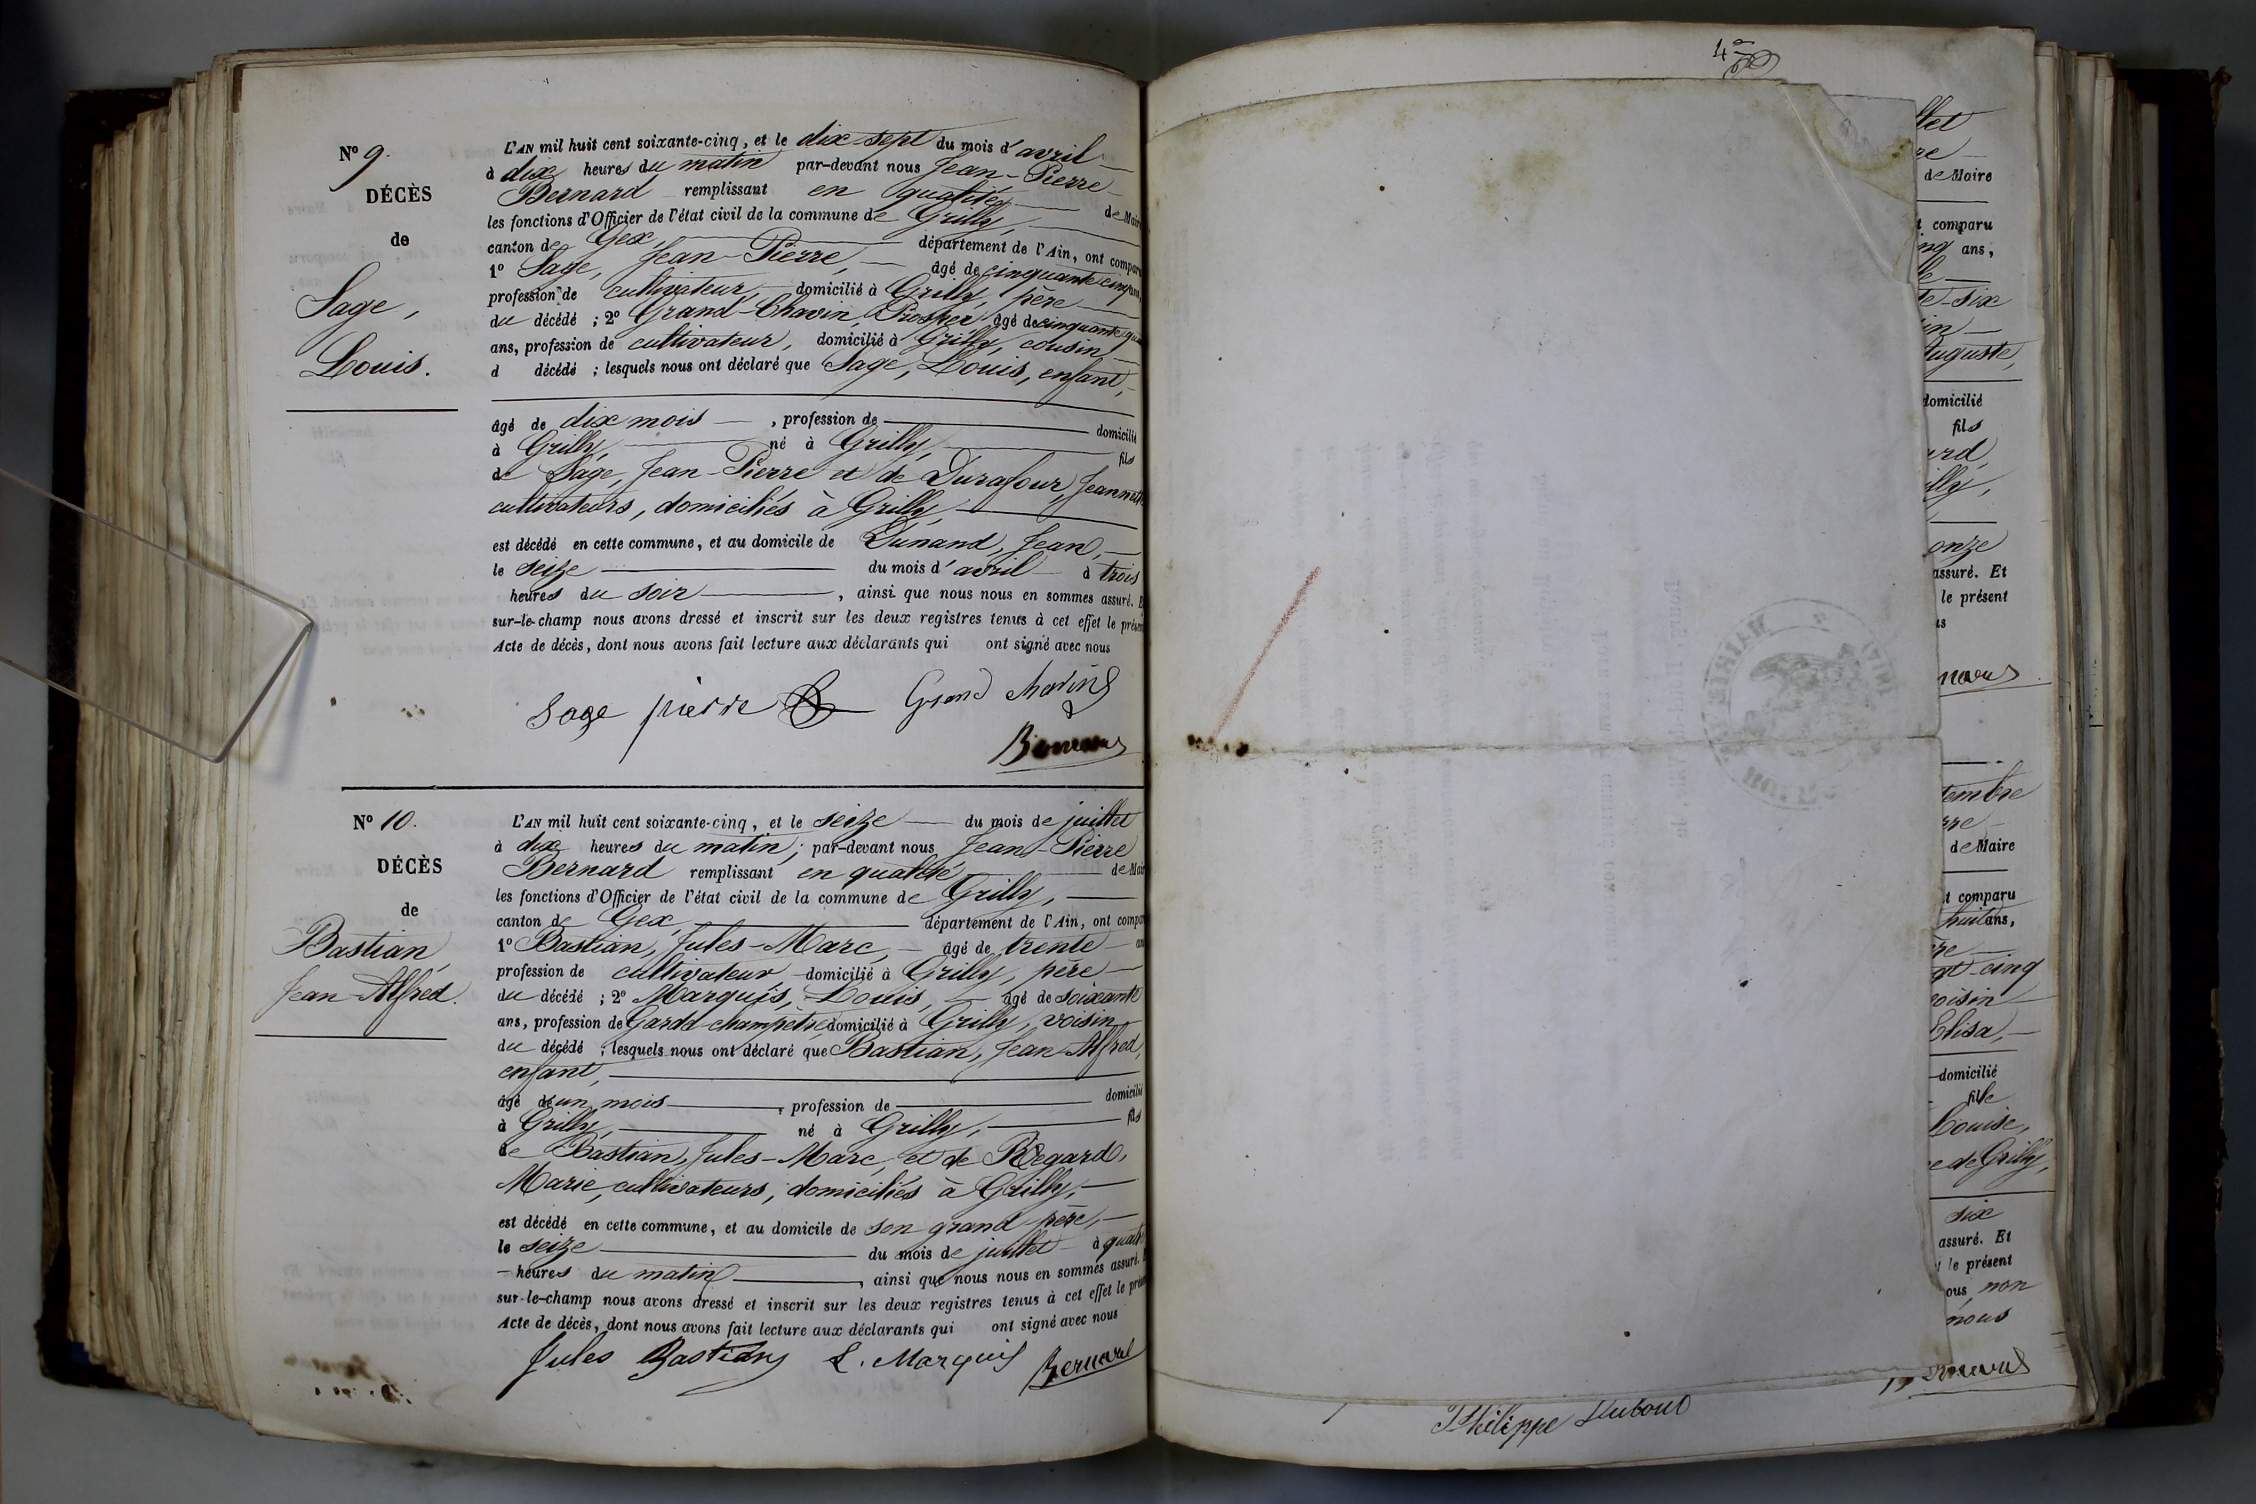 N° 9.
DÉCÈS
de
Sage,
Louis.
L'AN mil huit cent soixante-cinq, et le dix-sept du mois d'avril
à dix heures du matin par-devant nous Jean-Pierre
Bernard remplissant en qualité de Maire
les fonctions d'Officier de l'état civil de la commune de Grilly,
canton de Gex, département de l'Ain, ont comparu
1° Sage, Jean-Pierre, âgé de cinquante cinq ans,
profession de cultivateur, domicilié à Grilly, père
du décédé ; 2° Grand-Chavin, Prosper âgé de cinquante
ans, profession de cultivateur, domicilié à Grilly, cousin
d décédé ; lesquels nous ont déclaré que Sage, Louis, enfant,
âgé de dix mois , profession de domicilié
à Grilly, né à Grilly, fils
de Sage, Jean-Pierre et de Durafour, Jeannette
cultivateurs, domiciliés à Grilly,
est décédé en cette commune, et au domicile de Dunand, Jean,
le seize du mois d'avril à trois
heures du soir , ainsi que nous nous en sommes assuré. Et
sur-le-champ nous avons dressé et inscrit sur les deux registres tenus à cet effet le présent
Acte de décès, dont nous avons fait lecture aux déclarants qui ont signé avec nous
Sage pierre Grand Chavin
Bernard
N° 10.
DÉCÈS
de
Bastian,
Jean-Alfred.
L'AN mil huit cent soixante-cinq, et le seize du mois de juillet
à dix heures du matin ; par-devant nous Jean-Pierre
Bernard remplissant en qualité de Maire
les fonctions d'Officier de l'état civil de la commune de Grilly,
canton de Gex, département de l'Ain, ont comparu
1° Bastian, Jules-Marc, âgé de trente ans
profession de cultivateur domicilié à Grilly, père
du décédé ; 2° Marquis, Louis, âgé de soixante
ans, profession de Garde-champêtre, domicilié à Grilly, voisin
du décédé ; lesquels nous ont déclaré que Bastian, Jean-Alfred,
enfant,
âgé de un mois , profession de domicilié
à Grilly, né à Grilly, fils
de Bastian, Jules-Marc, et de Regard,
Marie, cultivateurs, domiciliés à Grilly,
est décédé en cette commune, et au domicile de son grand père,
le seize du mois de juillet à quatre
heures du matin , ainsi que nous nous en sommes assuré. Et
sur-le-champ nous avons dressé et inscrit sur les deux registres tenus à cet effet le présent
Acte de décès, dont nous avons fait lecture aux déclarants qui ont signé avec nous
Jules Bastian L. Marquis Bernard
llet
re
de Maire
t comparu
inq ans,
te-six
in
Auguste,
domicilié
fils
ard,
illy,
onze
assuré. Et
le présent
us
tembre
rre
de Maire
t comparu
huit ans,
re
gt-cinq
voisin
Elisa,
domicilié
fille
Louise,
e de Grilly,
six
assuré. Et
le présent
ous, non
nous
Philippe Dubout